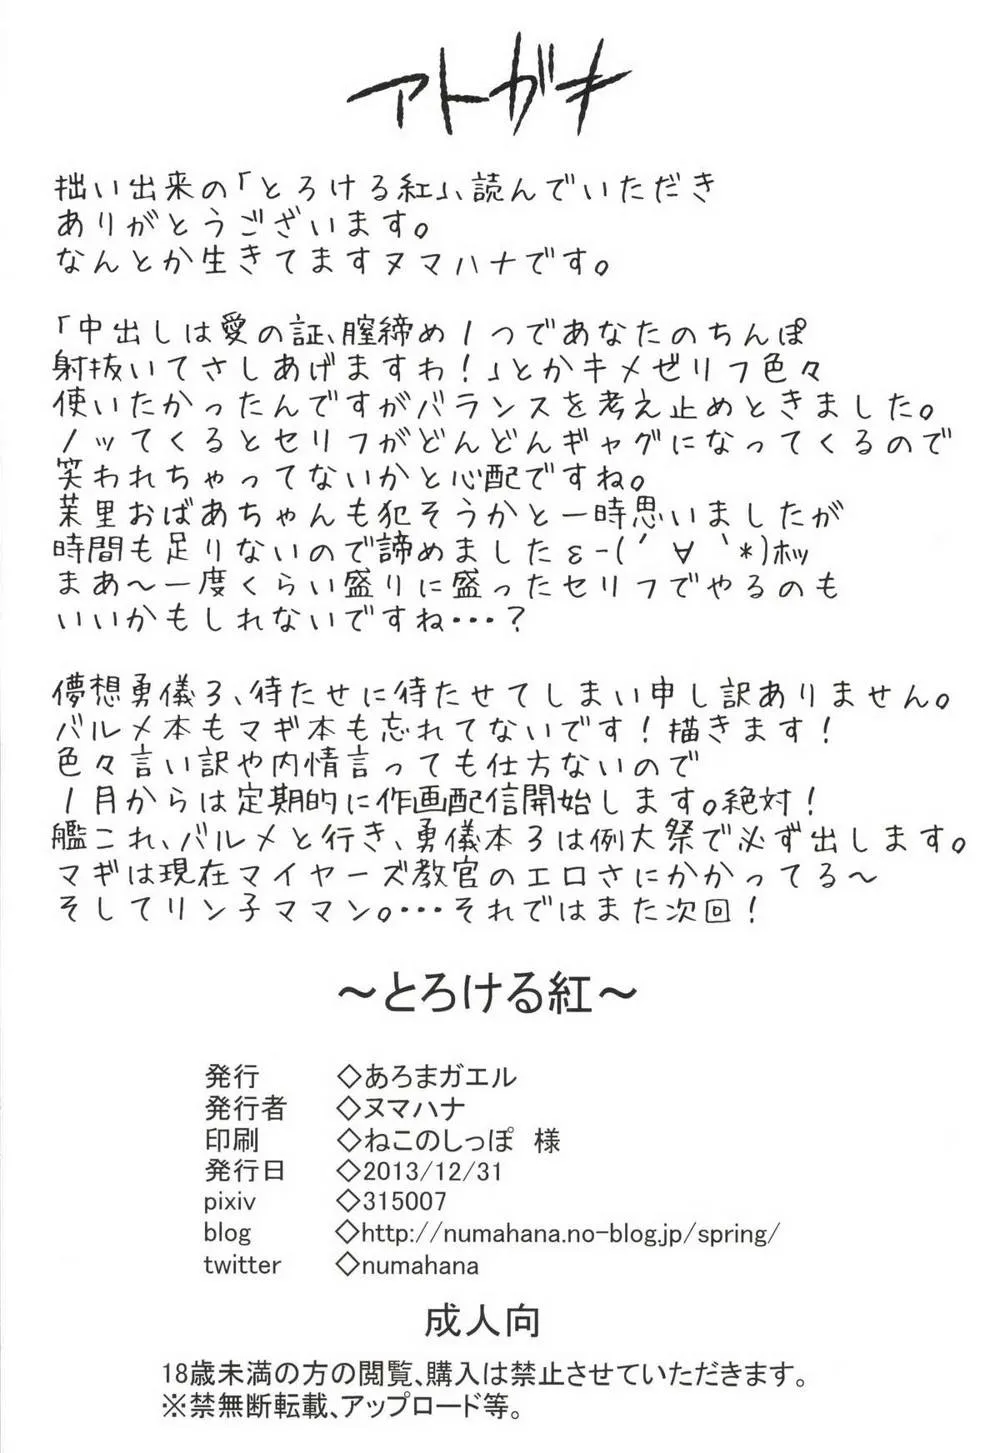 アトガキ
拙い出来の「とろける紅」、読んでいただき
ありがとうございます。
なんとか生きてますヌマハナです。
「中出しは愛の証、膣締め1つであなたのちんぽ
射抜いてさしあげますわ!」とかキメゼリフ色々
使いたかったんですがバランスを考え止めときました。
ノッてくるとセリフがどんどんギャグになってくるので
笑われちゃってないかと心配ですね。
茉里おばあちゃんも犯そうかと一時思いましたが
時間も足りないので諦めましたε-(´∀`*)ホッ
まあ~一度くらい盛りに盛ったセリフでやるのも
いいかもしれないですね・・・?
儚想勇儀3、待たせに待たせてしまい申し訳ありません。
バルメ本もマギ本も忘れてないです!描きます!
色々言い訳や内情言っても仕方ないので
1月からは定期的に作画配信開始します。絶対!
艦これ、バルメと行き、勇儀本3は例大祭で必ず出します。
マギは現在マイヤーズ教官のエロさにかかってる~
そしてリン子ママン。・・・それではまた次回!
～とろける紅～
発行 ◇あろまガエル
発行者 ◇ヌマハナ
印刷 ◇ねこのしっぽ 様
発行日 ◇2013/12/31
pixiv ◇315007
blog ◇http://numahana.no-blog.jp/spring/
twitter ◇numahana
成人向
18歳未満の方の閲覧、購入は禁止させていただきます。
※禁無断転載、アップロード等。